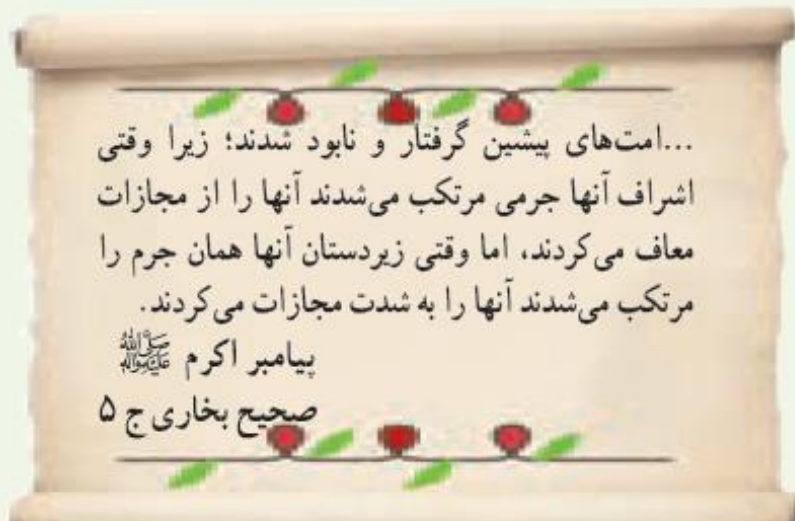 ...امت‌های پیشین گرفتار و نابود شدند؛ زیرا وقتی
اشراف آنها جرمی مرتکب می‌شدند آنها را از مجازات
معاف می‌کردند، اما وقتی زیردستان آنها همان جرم را
مرتکب می‌شدند آنها را به شدت مجازات می‌کردند.
پیامبر اکرم صلی‌الله علیه وآله
صحیح بخاری ج ۵